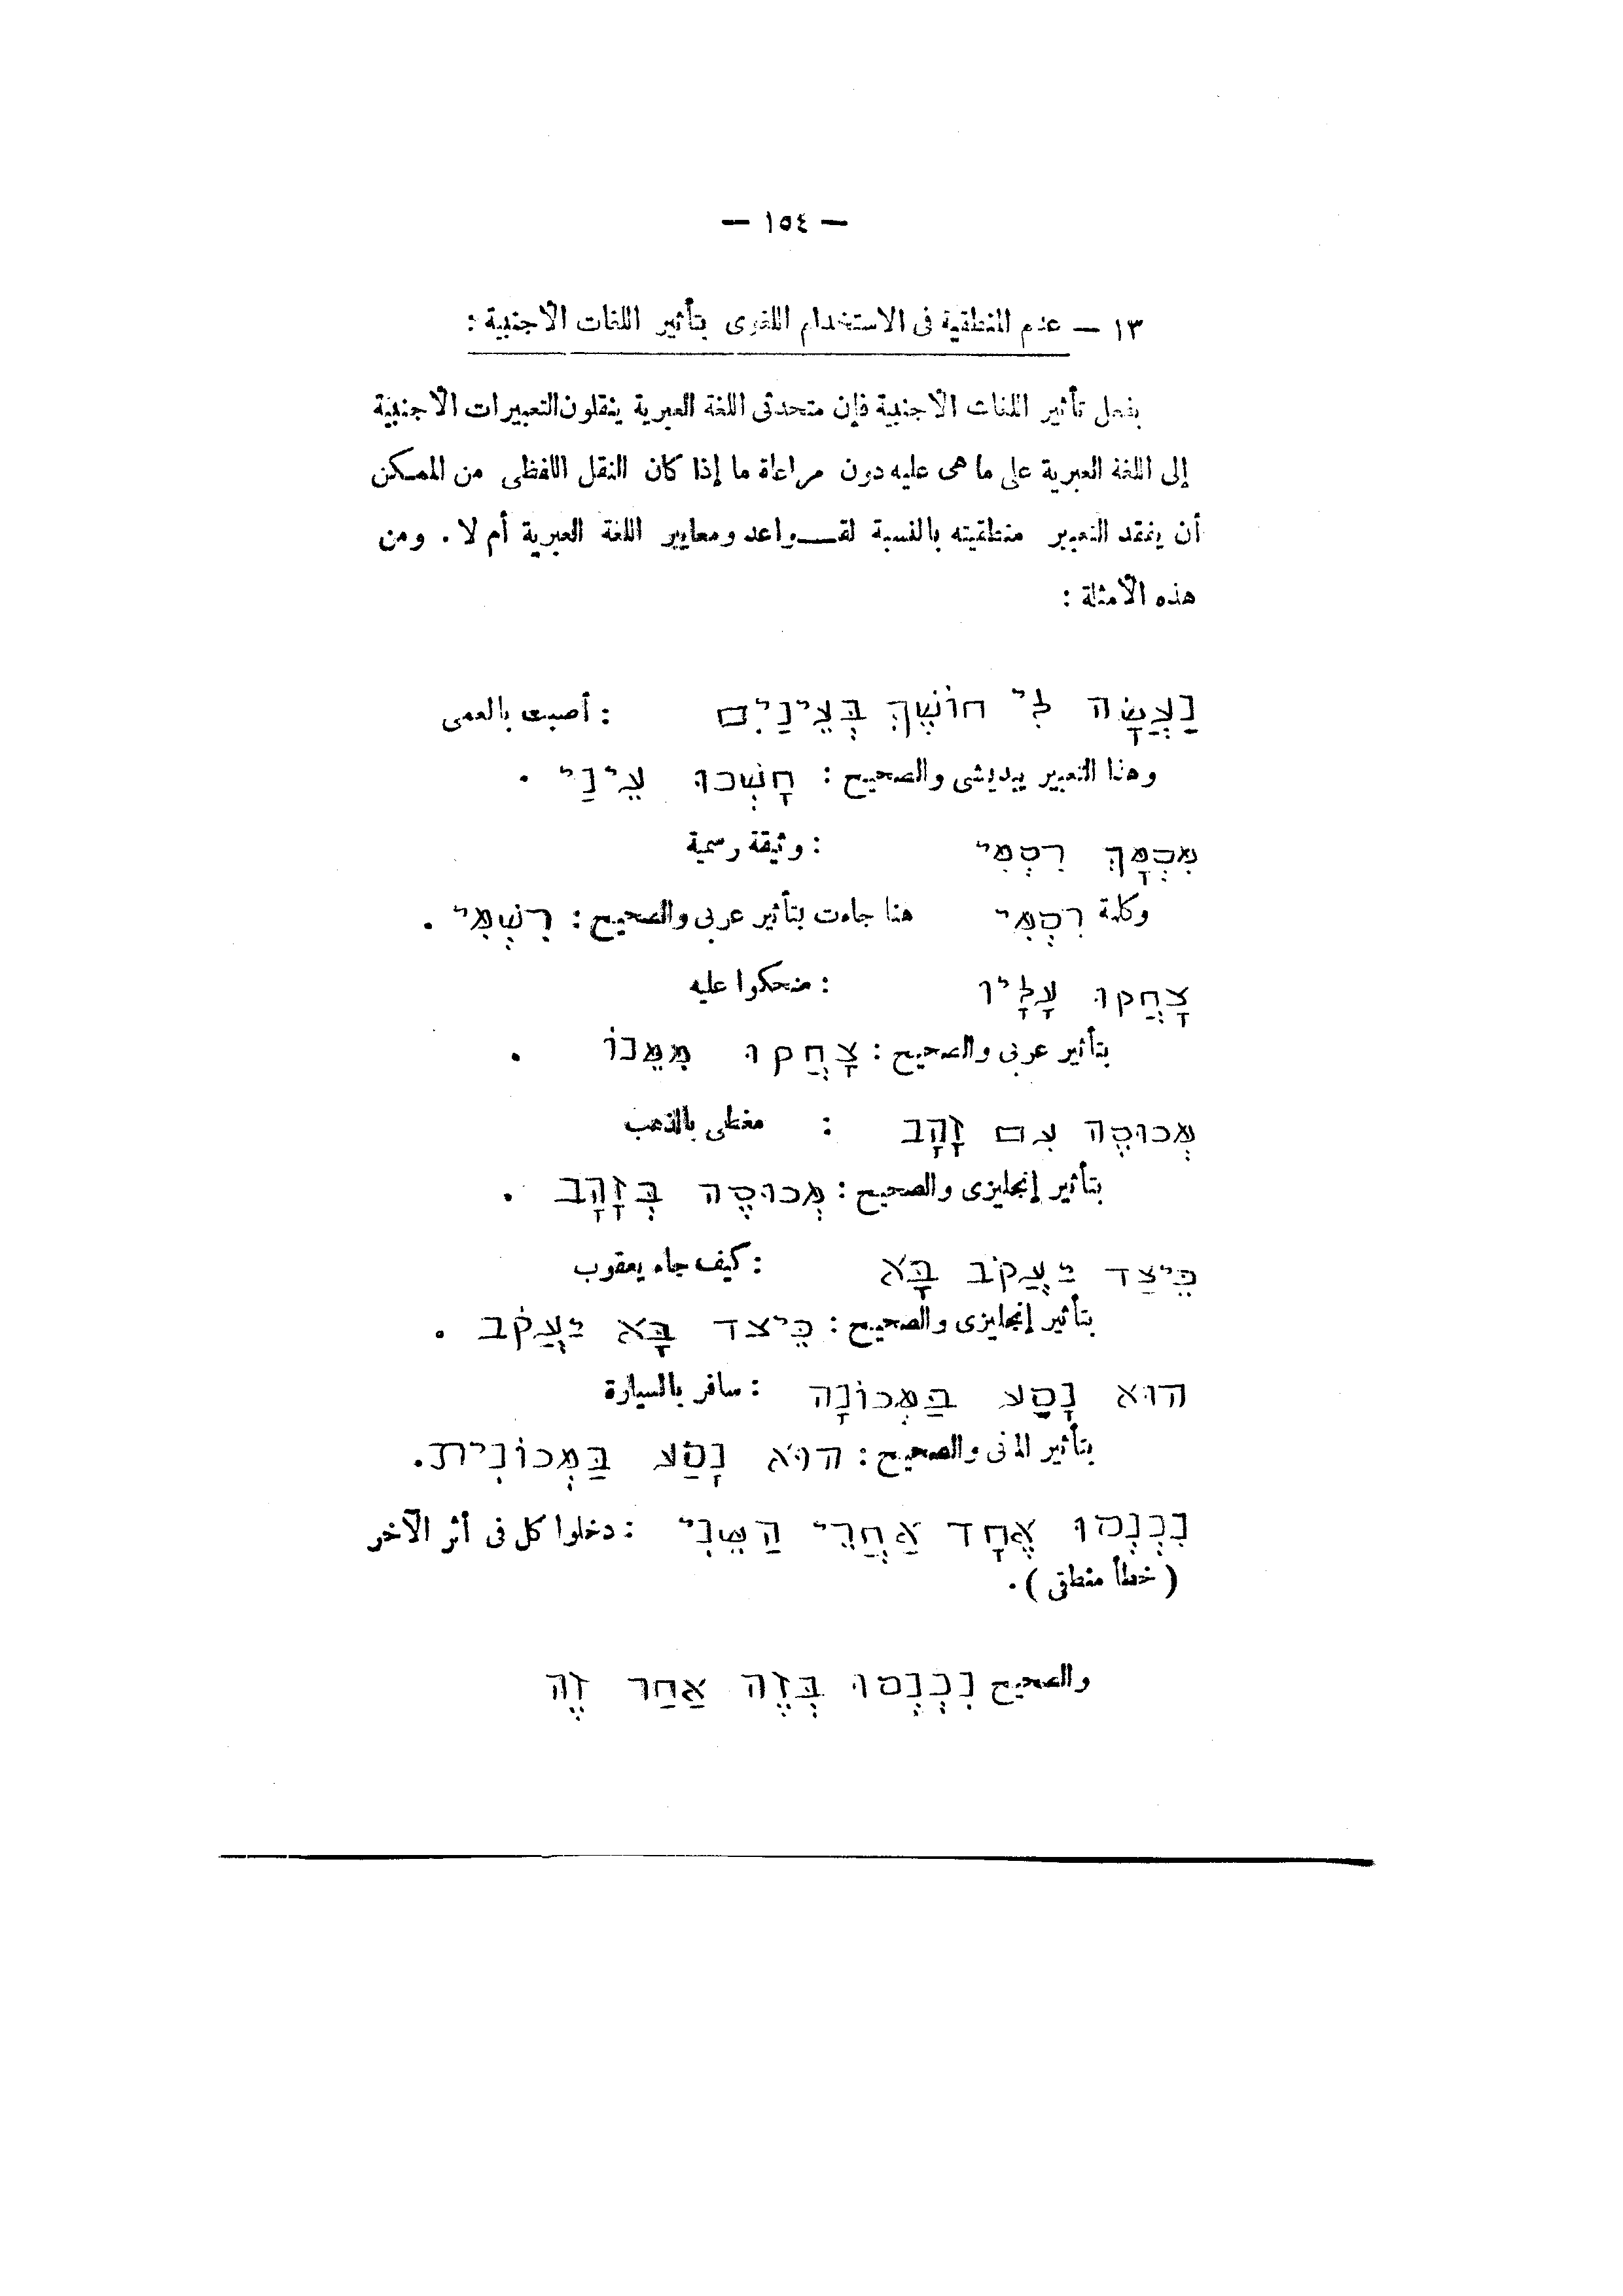 — ١٥٤ —
١٣ — عدم المنطقية فى الاستخدام اللغوى بتأثير اللغات الأجنبية :
بفعل تأثير اللغات الأجنبية فإن متحدثى اللغة العبرية ينقلون التعبيرات الأجنبية
إلى اللغة العبرية على ما هى عليه دون مراعاة ما إذا كان النقل اللفظى من الممكن
أن يفقد التعبير منطقيته بالنسبة لقـــواعد ومعايير اللغة العبرية أم لا . ومن
هذه الأمثلة :
נַעֲשָׂה לִי חוֹשֶׁךְ בְּעֵינַיִם : أصبت بالعمى
وهذا التعبير ييديشى والصحيح : חָשְׁכוּ עֵינַי .
מִסְמָךְ רִסְמִי : وثيقة رسمية
وكلمة רִסְמִי هنا جاءت بتأثير عربى والصحيح : רִשְׁמִי .
צָחֲקוּ עָלָיו : ضحكوا عليه
بتأثير عربى والصحيح : צָחֲקוּ מִמֵּנוֹ .
מְכוּסֶה עִם זָהָב : مغطى بالذهب
بتأثير إنجليزى والصحيح : מְכוּסֶה בְּזָהָב .
כֵּיצַד יַעֲקֹב בָּא : كيف جاء يعقوب
بتأثير إنجليزى والصحيح : כֵּיצד בָּא יַעֲקֹב .
הוּא נָסַע בַּמְכוֹנָה : سافر بالسيارة
بتأثير المانى والصحيح : הוּא נָסַע בַּמְכוֹנִית .
נִכְנְסוּ אֶחָד אַחֲרֵי הַשֵּׁנִי : دخلوا كل فى أثر الآخر
( خطأ منطقى ) .
والصحيح נִכְנְסוּ בְּזֶה אַחַר זֶה